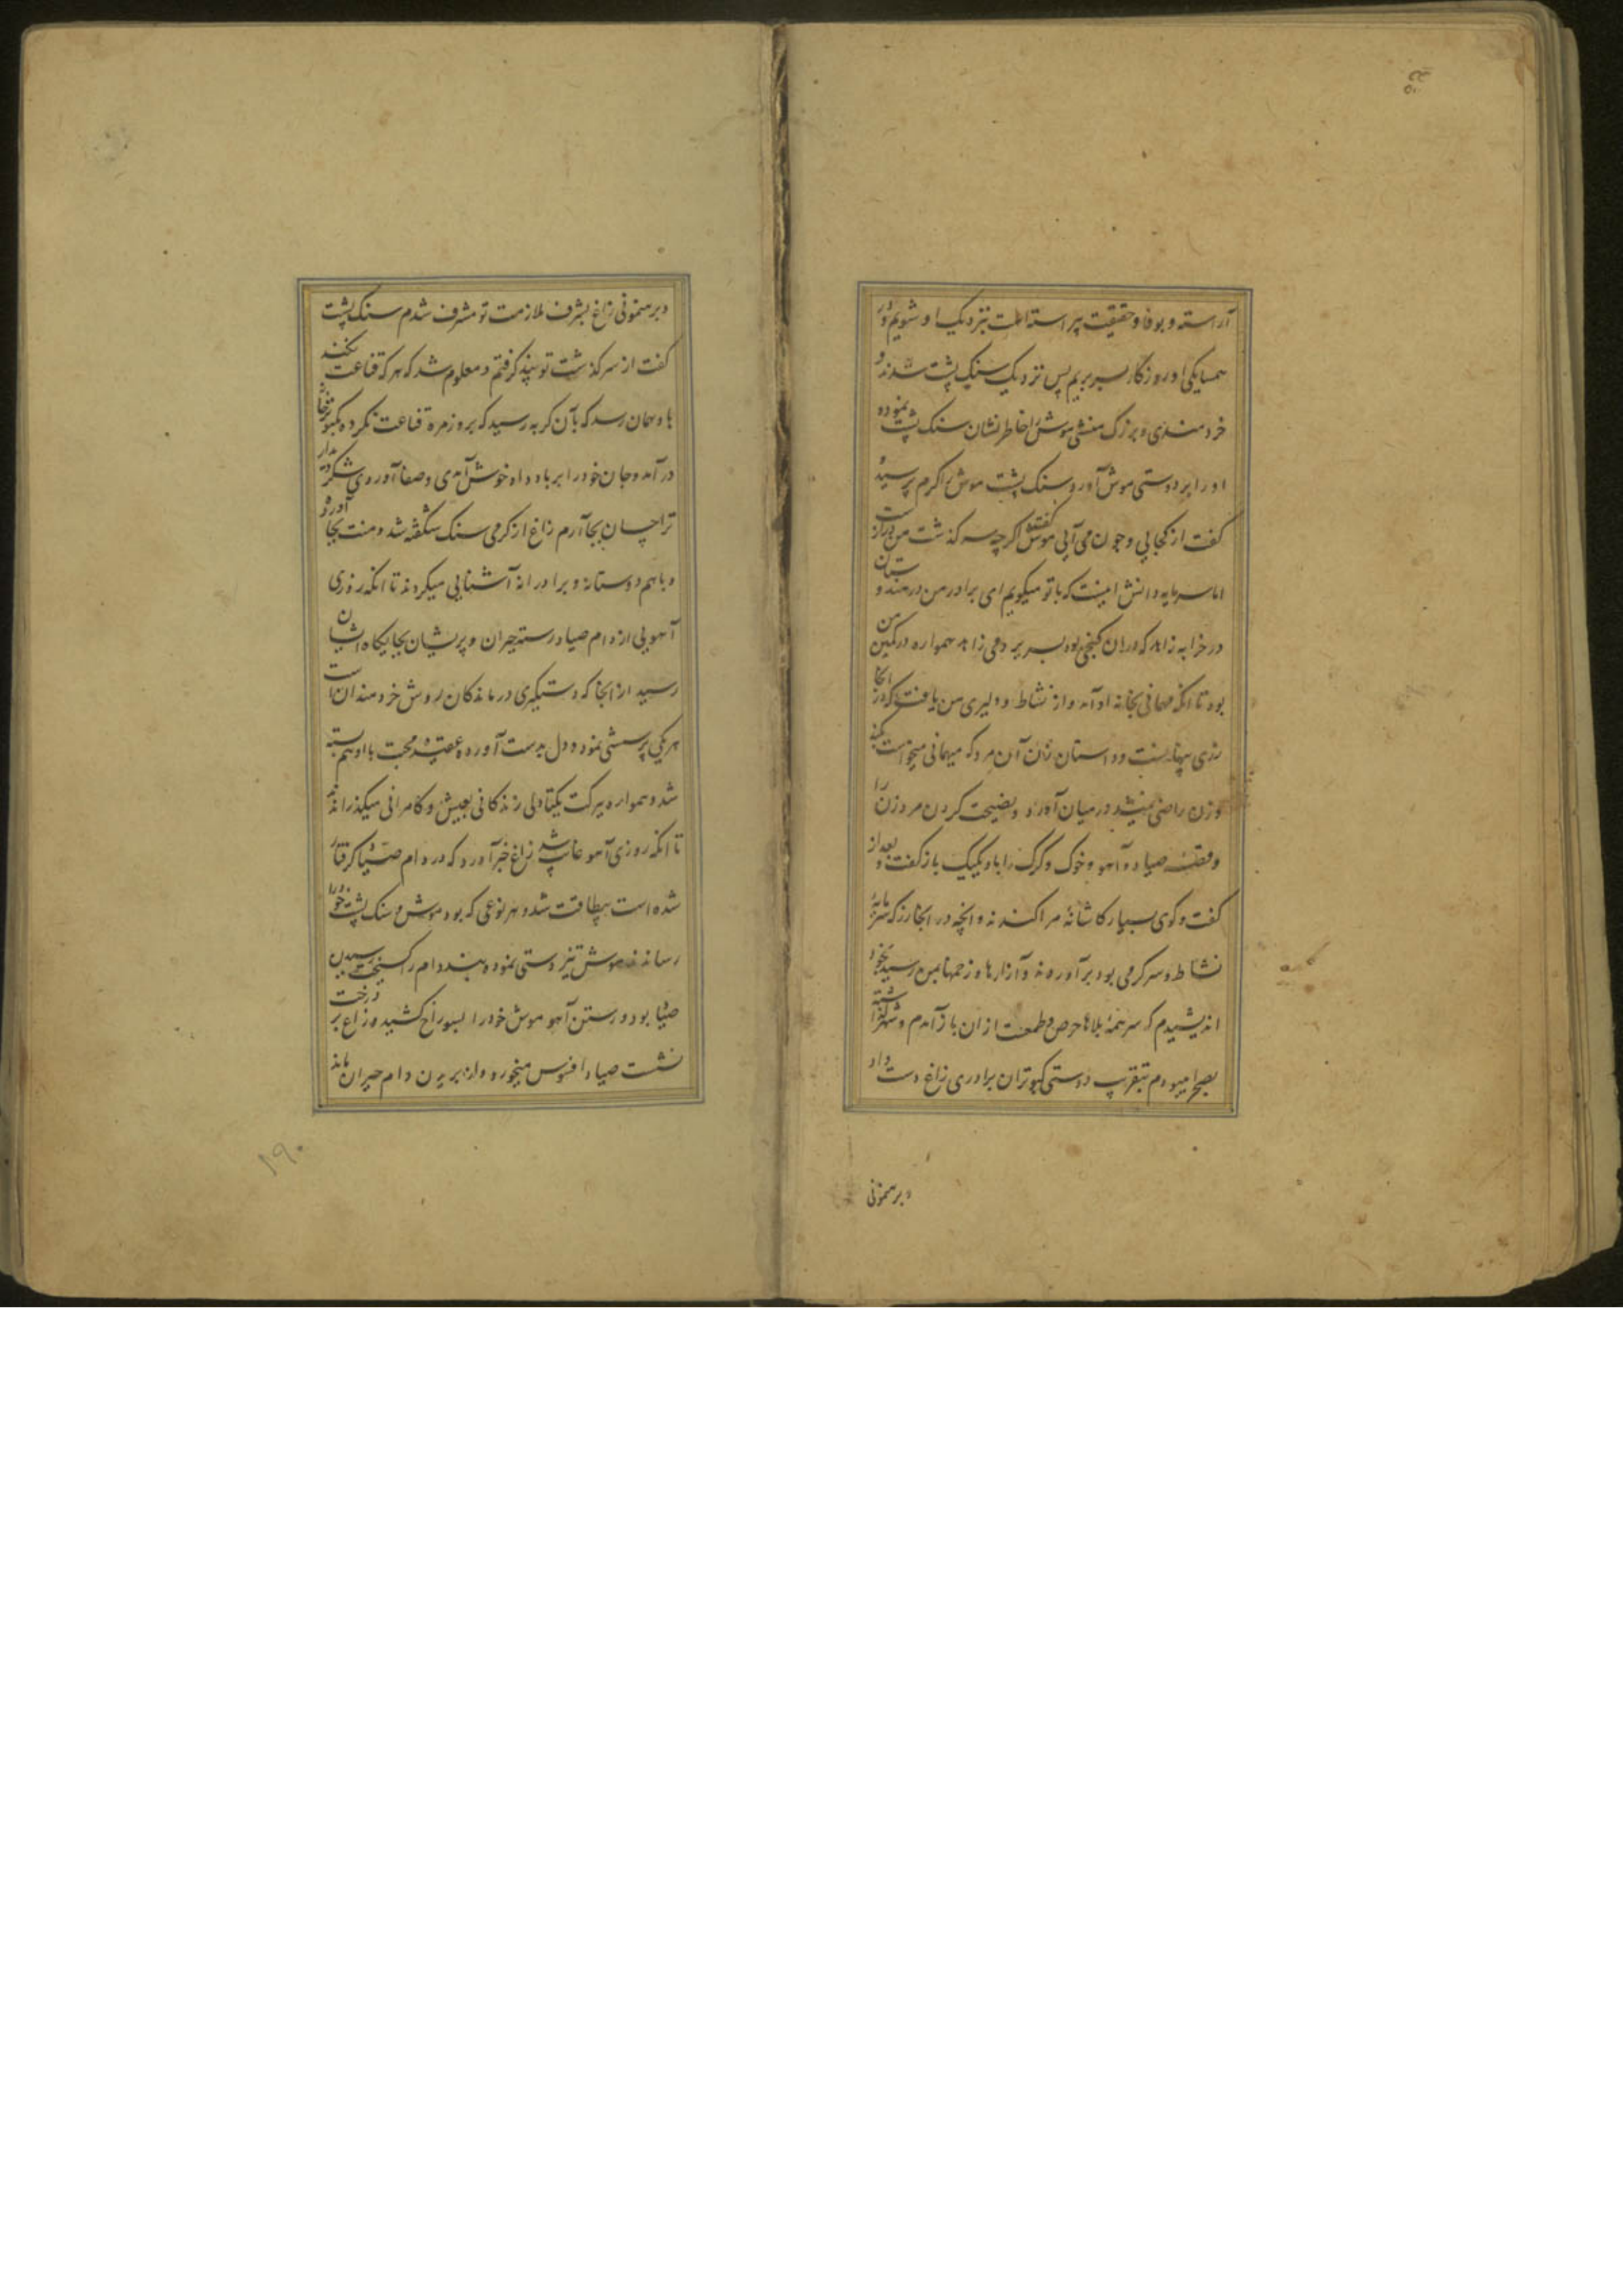 آراسته و بوفا و حقیقت پیراسته است نزدیک او شویم و در
همسایکی او روزکار بسر بریم پس نزدیک سنک پشت شدند و
خردمندی و بزرک منشی موش را خاطر نشان سنک پشت نموده
او را بر دوستی موش آورد و سنک پشت موش را کرم پرسید و
کفت از کجایی و چون می آیی موش کفت اکرچه سرکذشت من دراز است
اما سرمایه دانش اینست که با تو میکویم ای برادر من در هندوستان
در خرابه زاهد که دران کنجی بود بسر بردمی زاهد همواره در کمین من
بود تا انکه مهمانی بخانه او آمد و از نشاط و دلیری من یافت که در انجا
زری پنهانست و داستان زن آن مرد که میهمانی میخواست بکند
و زن راضی نمیشد در میان آورد و نصیحت کردن مرد زن را
و قصه صیاد و آهو و خوک و کرک را با و یکیک باز کفت و بعد از
کفت و کوی بسیار کاشانه مرا کندند و انچه در انجا زر که سرمایه
نشاط و سرکرمی بود برآوردند و آزارها و زحمها بمن رسید بخود
اندیشیدم که سر همه بلاها حرص و طمعست ازان باز آمدم و شهر کذاشته
بصحرا میبودم بتقریب دوستی کبوتران برادری زاغ دست داد
و برهنمونی
و برهنمونی زاغ بشرف ملازمت تو مشرف شدم سنک پشت
کفت از سرکذشت تو پند کرفتم و معلوم شد که هر که قناعت نکند
باو همان رسد که بآن کربه رسید که بروزمره قناعت نکرده بکبوترخانه
درآمد و جان خود را بر باد داد خوش آمدی و صفا آوردی شکر دیدار
ترا چسان بجا آرم زاغ از کرمی سنک پشت شکفته شد و منت بجا آورد
و باهم دوستانه و برادرانه آشنایی میکردند تا انکه روزی
آهویی از دام صیاد رسته حیران و پریشان بجایکاه ایشان
رسید از انجا که دستکیری درماندکان روش خردمندان است
هر یکی پرسشی نموده دل بدست آورده عقد محبت با او هم بسته
شد و همواره ببرکت یکتادلی زندکانی بعیش و کامرانی میکذرانیدند
تا انکه روزی آهو غایب شد زاغ خبر آورد که در دام صیاد کرفتار
شده است بیطاقت شد و هر نوعی که بود موش و سنک پشت خود را
رساندند موش تیزدستی نموده بند دام را کسیخت رسیدن
صیاد بود و رستن آهو موش خود را بسوراخ کشید و زاغ بر درخت
نشست صیاد افسوس میخورد و از بریدن دام حیران ماند
۱۹۰